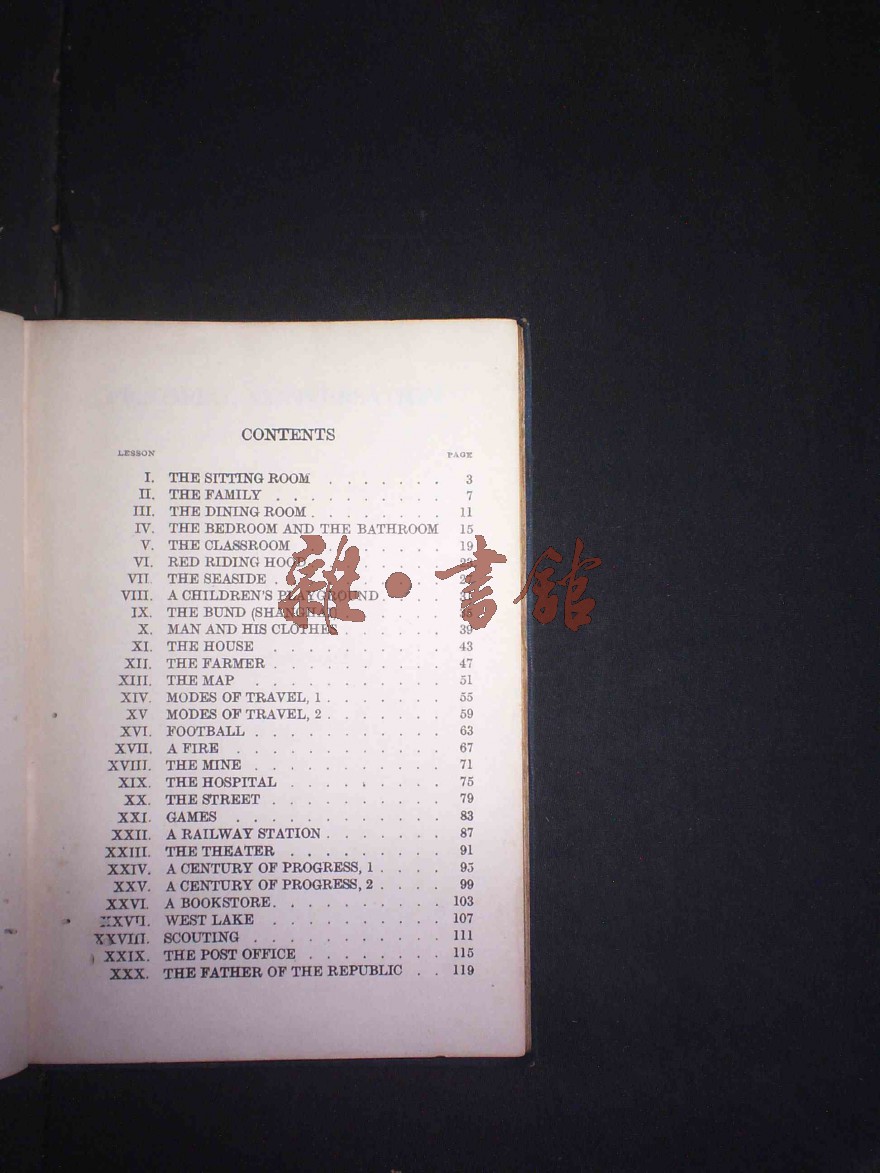 CONTENTS
LESSON PAGE
I. THE SITTING ROOM . . . . . . . 3
II. THE FAMILY . . . . . . . . . . 7
III. THE DINING ROOM . . . . . . . . 11
IV. THE BEDROOM AND THE BATHROOM 15
V. THE CLASSROOM . . . . . . . . . 19
VI. RED RIDING HOOD
VII. THE SEASIDE . . . . . . . . . . 27
VIII. A CHILDREN'S PLAYGROUND . . . .
IX. THE BUND (SHANGHAI)
X. MAN AND HIS CLOTHES . . . . . . 39
XI. THE HOUSE . . . . . . . . . . 43
XII. THE FARMER . . . . . . . . . . 47
XIII. THE MAP . . . . . . . . . . . 51
XIV. MODES OF TRAVEL, 1 . . . . . . . 55
XV MODES OF TRAVEL, 2 . . . . . . . 59
XVI. FOOTBALL . . . . . . . . . . . 63
XVII. A FIRE . . . . . . . . . . . . 67
XVIII. THE MINE . . . . . . . . . . . 71
XIX. THE HOSPITAL . . . . . . . . . 75
XX. THE STREET . . . . . . . . . . 79
XXI. GAMES . . . . . . . . . . . . 83
XXII. A RAILWAY STATION . . . . . . . 87
XXIII. THE THEATER . . . . . . . . . 91
XXIV. A CENTURY OF PROGRESS, 1 . . . . 95
XXV. A CENTURY OF PROGRESS, 2 . . . . 99
XXVI. A BOOKSTORE . . . . . . . . . . 103
XXVII. WEST LAKE . . . . . . . . . . 107
XXVIII. SCOUTING . . . . . . . . . . . 111
XXIX. THE POST OFFICE . . . . . . . . 115
XXX. THE FATHER OF THE REPUBLIC . . 119
雜·書館